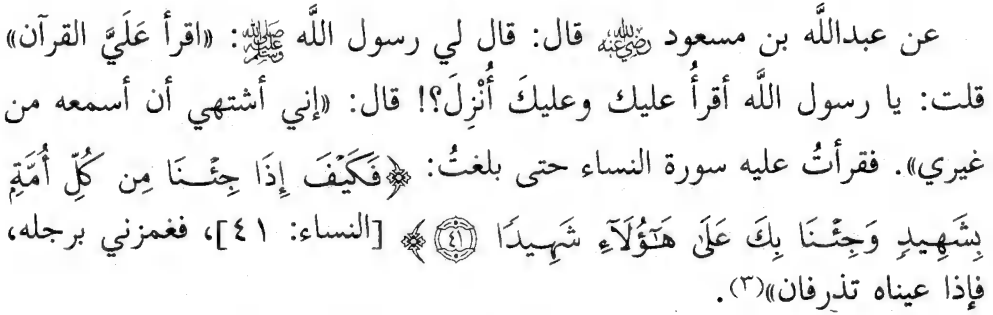 عن عبداللَّه بن مسعود رضي الله عنه قال: قال لي رسول اللَّه ﷺ: «اقرأ عَلَيَّ القرآن»
قلت: يا رسول اللَّه أقرأُ عليك وعليكَ أُنْزِلَ؟! قال: «إني أشتهي أن أسمعه من
غيري». فقرأتُ عليه سورة النساء حتى بلغتُ: ﴿فَكَيْفَ إِذَا جِئْنَا مِن كُلِّ أُمَّةٍ
بِشَهِيدٍ وَجِئْنَا بِكَ عَلَىٰ هَٰٓؤُلَآءِ شَهِيدًا ٤١﴾ [النساء: ٤١]، فغمزني برجله،
فإذا عيناه تذرفان»(٣).